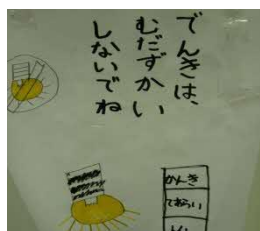 でんきは、
むだずかい
しないでね
かんき
てあらい